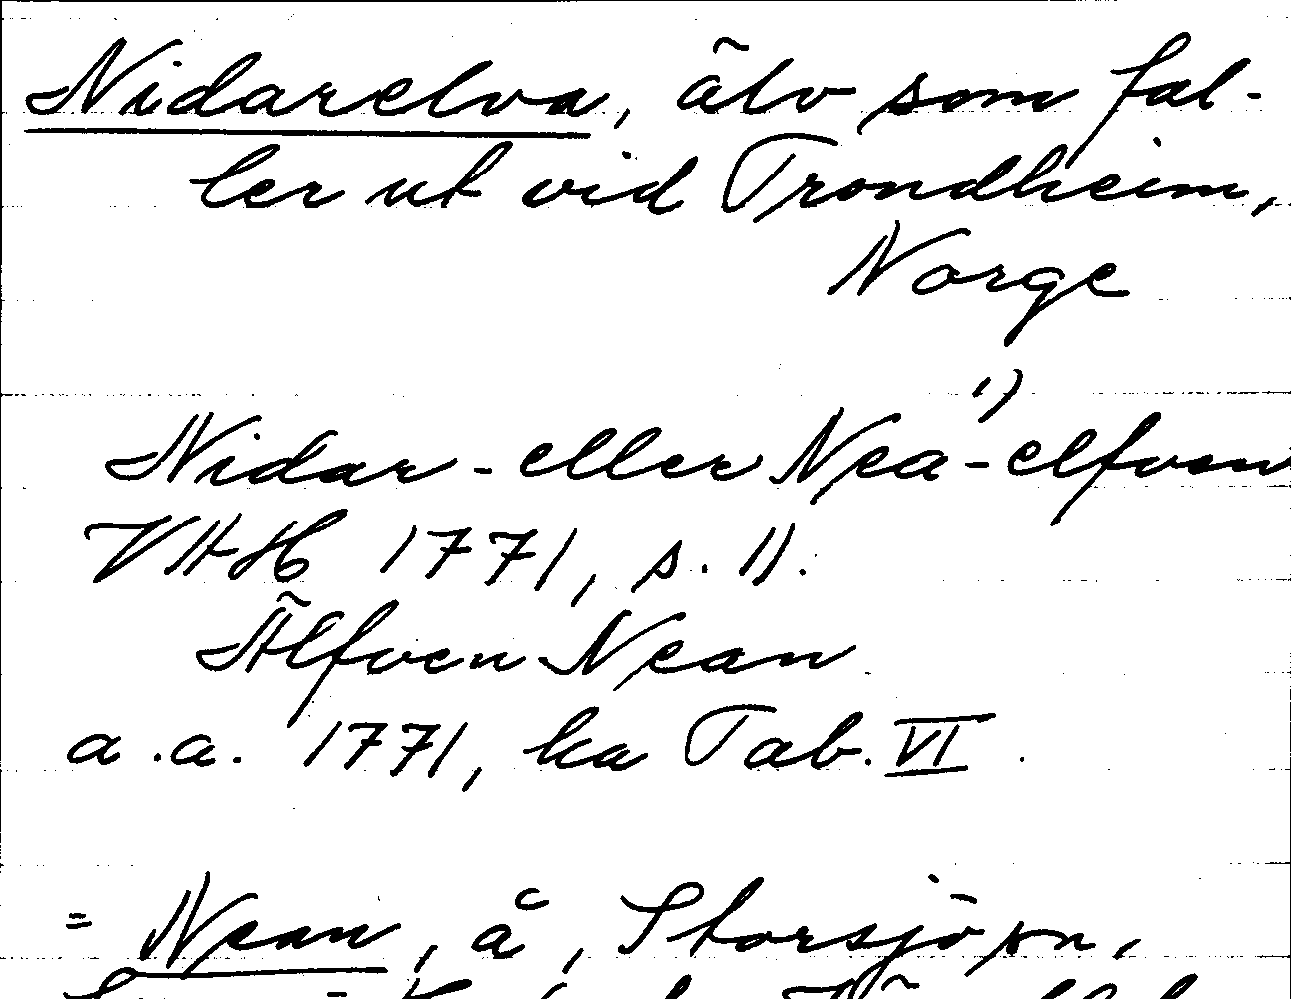 Nidarelva, älv som fal-
ler ut vid Trondheim,
Norge
1)
Nidar-eller Nea-elfven
VHH 1771, s. 11.
Älfven Nean
a.a. 1771, ka Tab. VI.
= Nean, å, Storsjö sn,